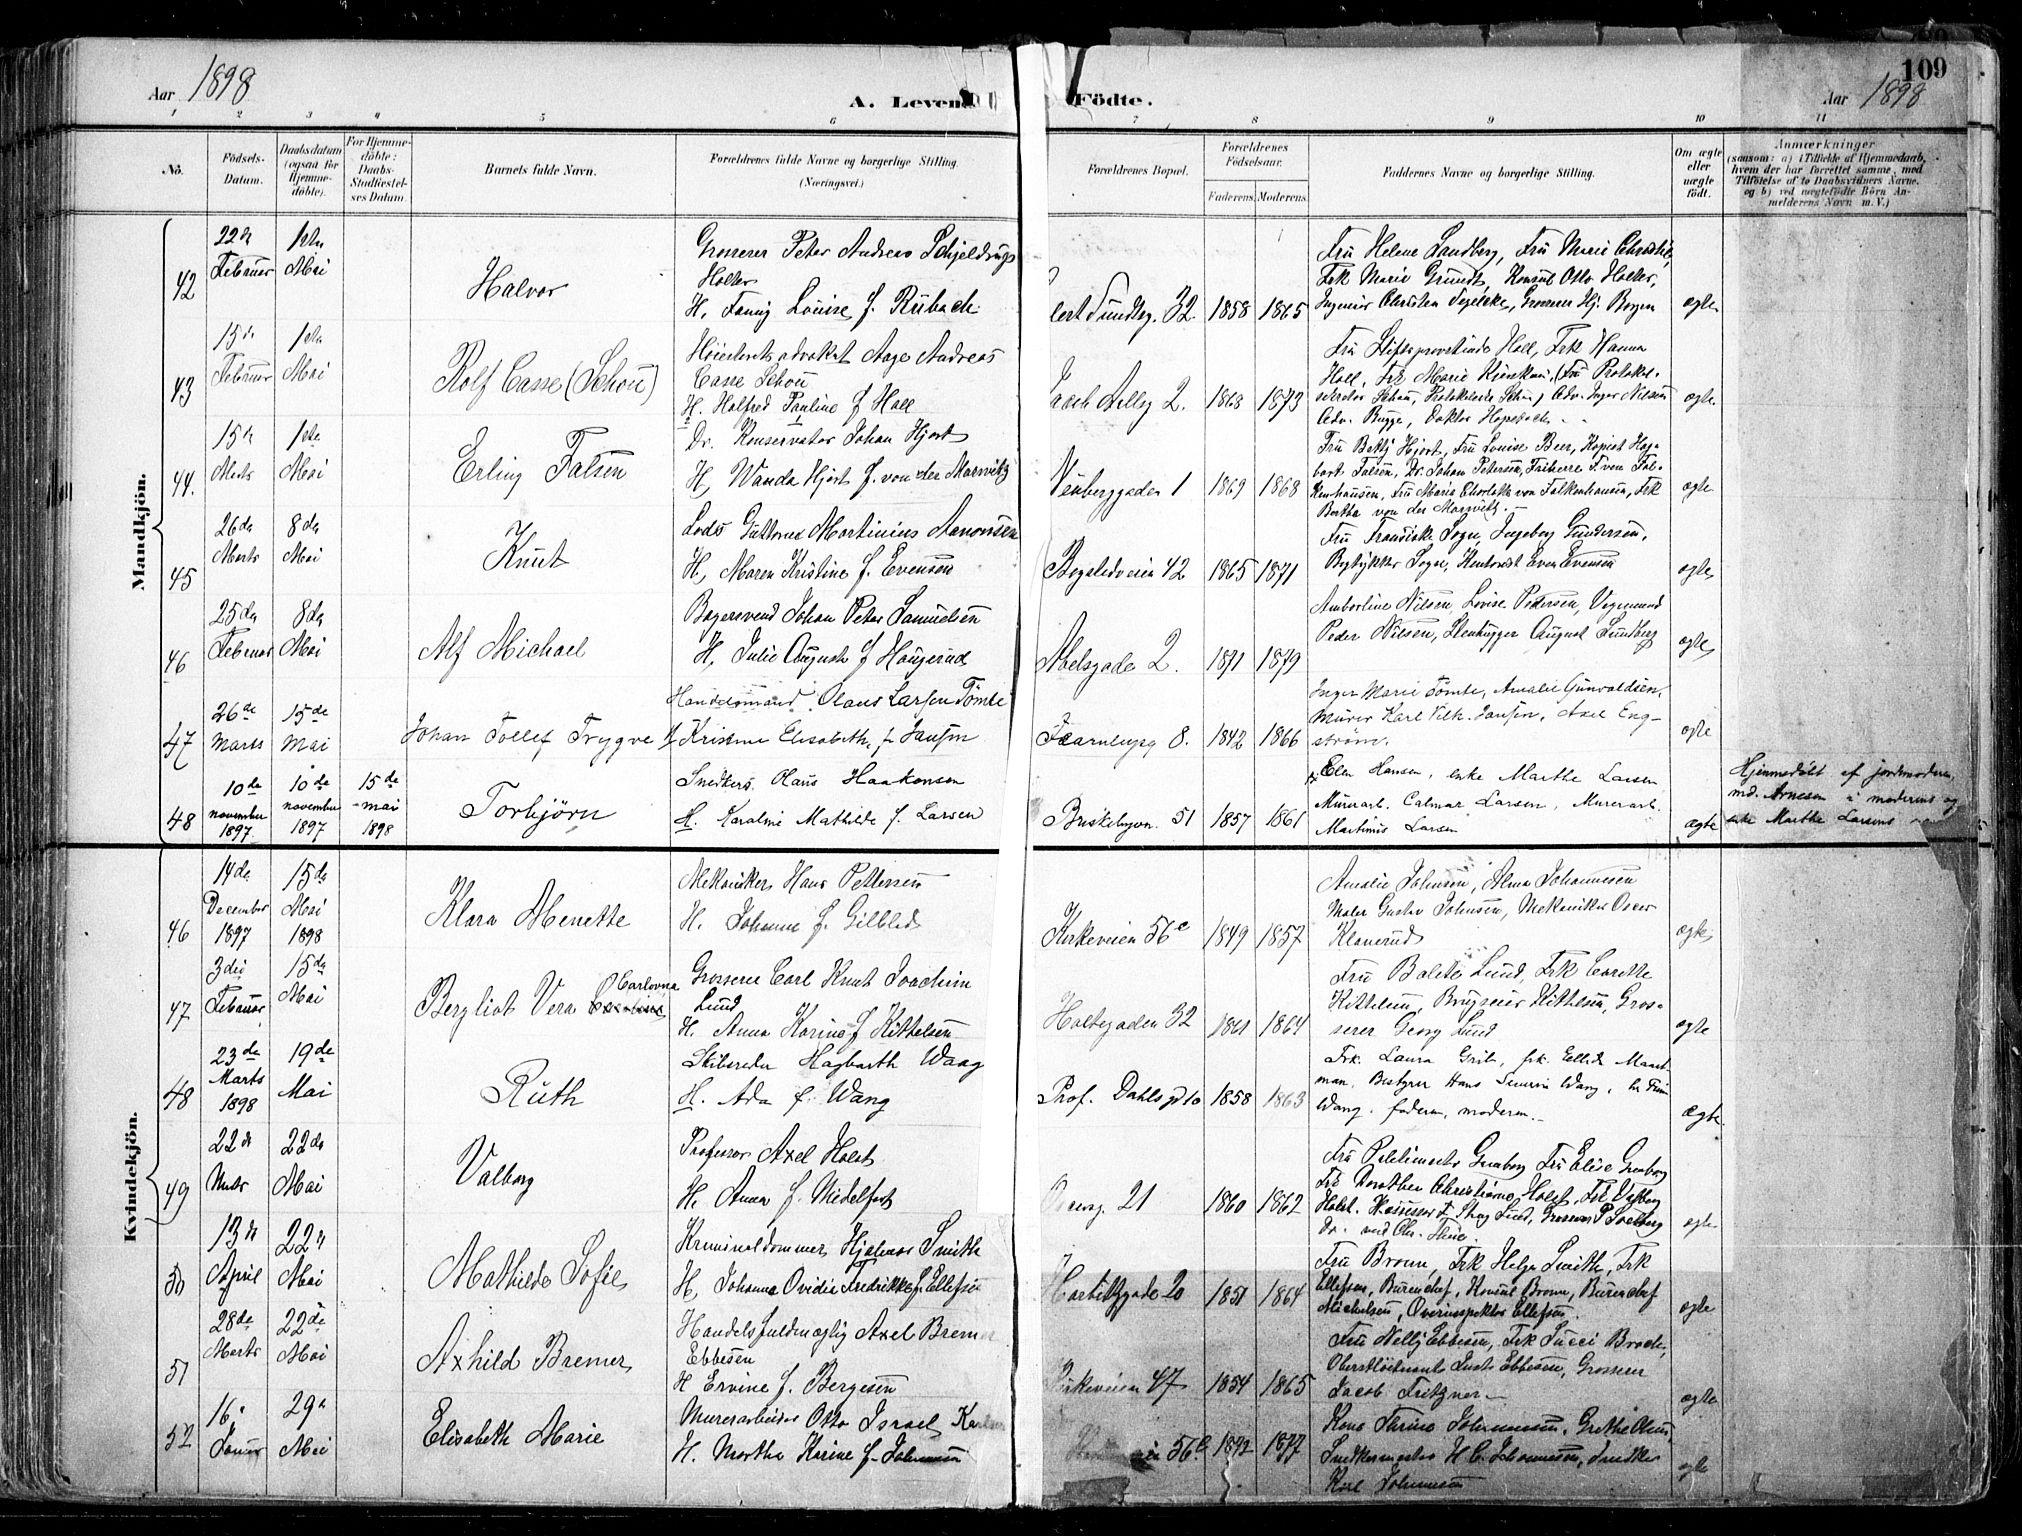 Aar 1898
A. Levend
Födte.
109
Aar 1898
1 2 3 4 5 6 7 8 9 10 11
No.
Födsels-
Datum.
Daabsdatum
(ogsaa for
Hjemme-
döbte).
For Hjemme-
döbte:
Daabs-
Stadfæstel-
ses Datum.
Barnets fulde Navn.
Forældrenes fulde Navne og borgerlige Stilling.
(Næringsvei.)
Forældrenes Bopæl.
Forældrenes
Födselsaar.
Faderens. Moderens.
Faddernes Navne og borgerlige Stilling.
Om ægte
eller
uægte
födt.
Anmærkninger
(saasom: a) i Tilfælde af Hjemmedaab,
hvem der har forrettet samme, med
Tilföielse af to Daabsvidners Navne.
og b) ved uægtefödte Börn An-
melderens Navn m. V.)
Mandkjön.
42
22de
Februar
1ste
Mai
Halvor
Grosserer Peter Andreas Schjeldrups
Holter
H. Fanny Louise f. Rubach
lert Sundtsg. 32
1858 1865
Fru Helene Sandberg, Fru Marie Christie,
Frk Marie Grundt, Konsul Otto Holter,
Ingeniør Christian Segelcke, Grosserer Hj. Borgen
ægte
43
15de
Februar
1ste
Mai
Rolf Casse (Schou)
Høiesteretsadvokat Aage Andreas
Casse Schou
H. Halfred Pauline f Hall
Jacob Aallsg 2.
1868 1873
Fru Stiftsprovstinde Hall, Frk Hanna
Hall, Frk Marie
Adv. Bugge, Doktor
ægte
44.
15de
Marts
1ste
Mai
Erling Falsen
Dr. Konservator Johan Hjort
H, Wanda Hjort f. von der Marwitz
Vinberggaden 1
1869 1868
Fru Betty Hjort, Fru Louise Beer, Kopist Hag-
bart Falsen, Dr. Johan Petersen, Friherre F. von Fal-
kenhausen, Fru Marie Charlotte von Falkenhausen, Frk
Bertha von der Marwitz.
ægte
45
26de
Marts
8de
Mai
Knut
Lods Guttorm Martinius Aanonsen
H, Maren Kristine f. Evensen
Bogstadveien 42
1865 1871
Fru Fransiska Sogn, Ingeborg Gundersen,
Bogtykker Sogn, Kontorist Even Evensen
ægte
46
25de
Februar
8de
Mai
Alf Michael
Bagersvend Johan Peter Samuelsen
H, Julie Augusta f Haugerud
Abelsgade 2.
1871 1879
Amborline Nilsen, Lovise Pedersen, Vognmand
Peder Nilsen, Stenhugger August Sundberg
ægte
47
26de
Marts
15de
Mai
Johan Tollef Trygve
Handelsmand Olaus Larsen Tömte
H Kristine Elisabeth f. Jansen
Fearnleysg 8.
1842 1866
Inger Marie Tömte, Amalie Gunvaldsen,
Murer Karl Vilh. Jansen, Axel Eng-
ström.
ægte
48
10de
november
1897
10de
november
1897
15de
mai
1898
Torbjörn
Snedkers. Olaus Haakonsen
H. Karoline Mathilde f. Larsen
Briskebyvn. 51
1857 1861
Elen Hansen, enke Marthe Larsen
Murerarb. Calmar Larsen, Murerarb.
Martinus Larsen
ægte
Hjemmedöbt af jordmoderen,
md. Arnesen i moderens og
enke Marthe Larsens
Kvindekjön.
46
14de
December
1897
15de
Mai
1898
Klara Menette
Mekaniker Hans Pettersen
H. Johanne f. Gilblad
Kirkeveien 56c
1849 1857
Amalie Johnsen, Alma Johannesen
Maler Gustav Johnsen, Mekaniker Oscar
Klanerud
ægte
47
3die
Februar
15de
Mai
Bergliot Vera Carlovna
Grosserer Carl Knut Joachim
Lund
H. Anna Karine f Kittelsen
Holtegaden 32
1861 1864
Fru Balette Lund, Frk Carette
Kittelsen, Brugseier Kittelsen, Gros-
serer Georg Lund
ægte
48
23de
Marts
1898
19de
Mai
Ruth
Skibsreder Hagbarth Waag
H. Ada f. Wang
Prof. Dahls gd 10
1858 1863
Frk. Laura Grib, frk. Ellida Maart-
man, Bestyrer Hans Severin Wang,
Wang. faderen, moderen.
ægte
49
22de
Marts
22de
Mai
Valborg
Professor Axel Holst
H. Anna f. Midelfart
21
1860 1862
Fru Politimester Grønborg Fru Elise Grønborg
Frk Dorothea Christiane Holst, Frk Valborg
Holst.
ægte
50
13de
April
22de
Mai
Mathilde Sofie
Kriminaldommer Hjalmar Smith
H, Johanna Ovidia Fredrikke f. Ellefsen
Harbitzgade 20
1851 1864
Fru Broun, Frk Helga Smith, Frk
Ellefsen, Bureauchef, Konsul Broun, Bureauchef
Michelsen, Overinspektør Ellefsen
ægte
51
28de
Marts
22de
Mai
Axhild Bremer
Handelsfuldmægtig Axel Bremer
Ebbesen
H Ervine f. Bergesen
Kirkeveien 47
1854 1865
Fru Nelly Ebbesen, Frk Succi Brock,
Oberstløitnant Just Ebbesen, Grosserer
Jacob Fritzner
ægte
52
16.
Januar
29de
Mai
Elisabeth Marie
Murerarbeider Otto Israel
H. Martha Karine f. Johannesen
56c
1872 1877
Kone Thrine Johannessen, Grethe Olsen,
Snedkermester H C Johannessen, Snedker
Karl Johannesen
ægte